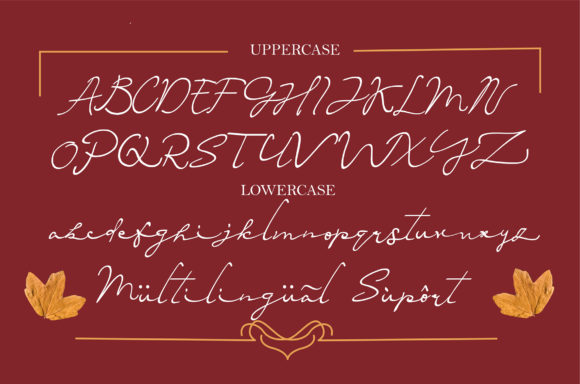 UPPERCASE
ABCDEFGHIJKLMN
OPQRSTUVWXYZ
LOWERCASE
abcdefghijklmnopqrstuvwxyz
Mültilingüãl Sùpôrt